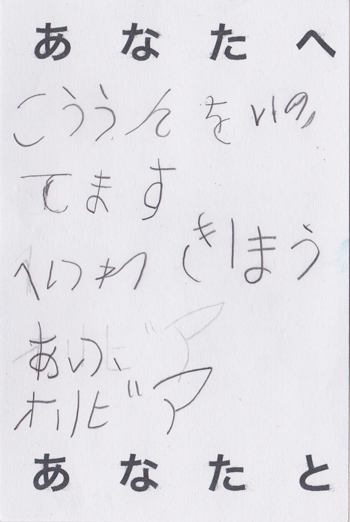 あなたへ
こううんをいのっ
てます
へいわ きぼう
あい、
オリビア
あなたと